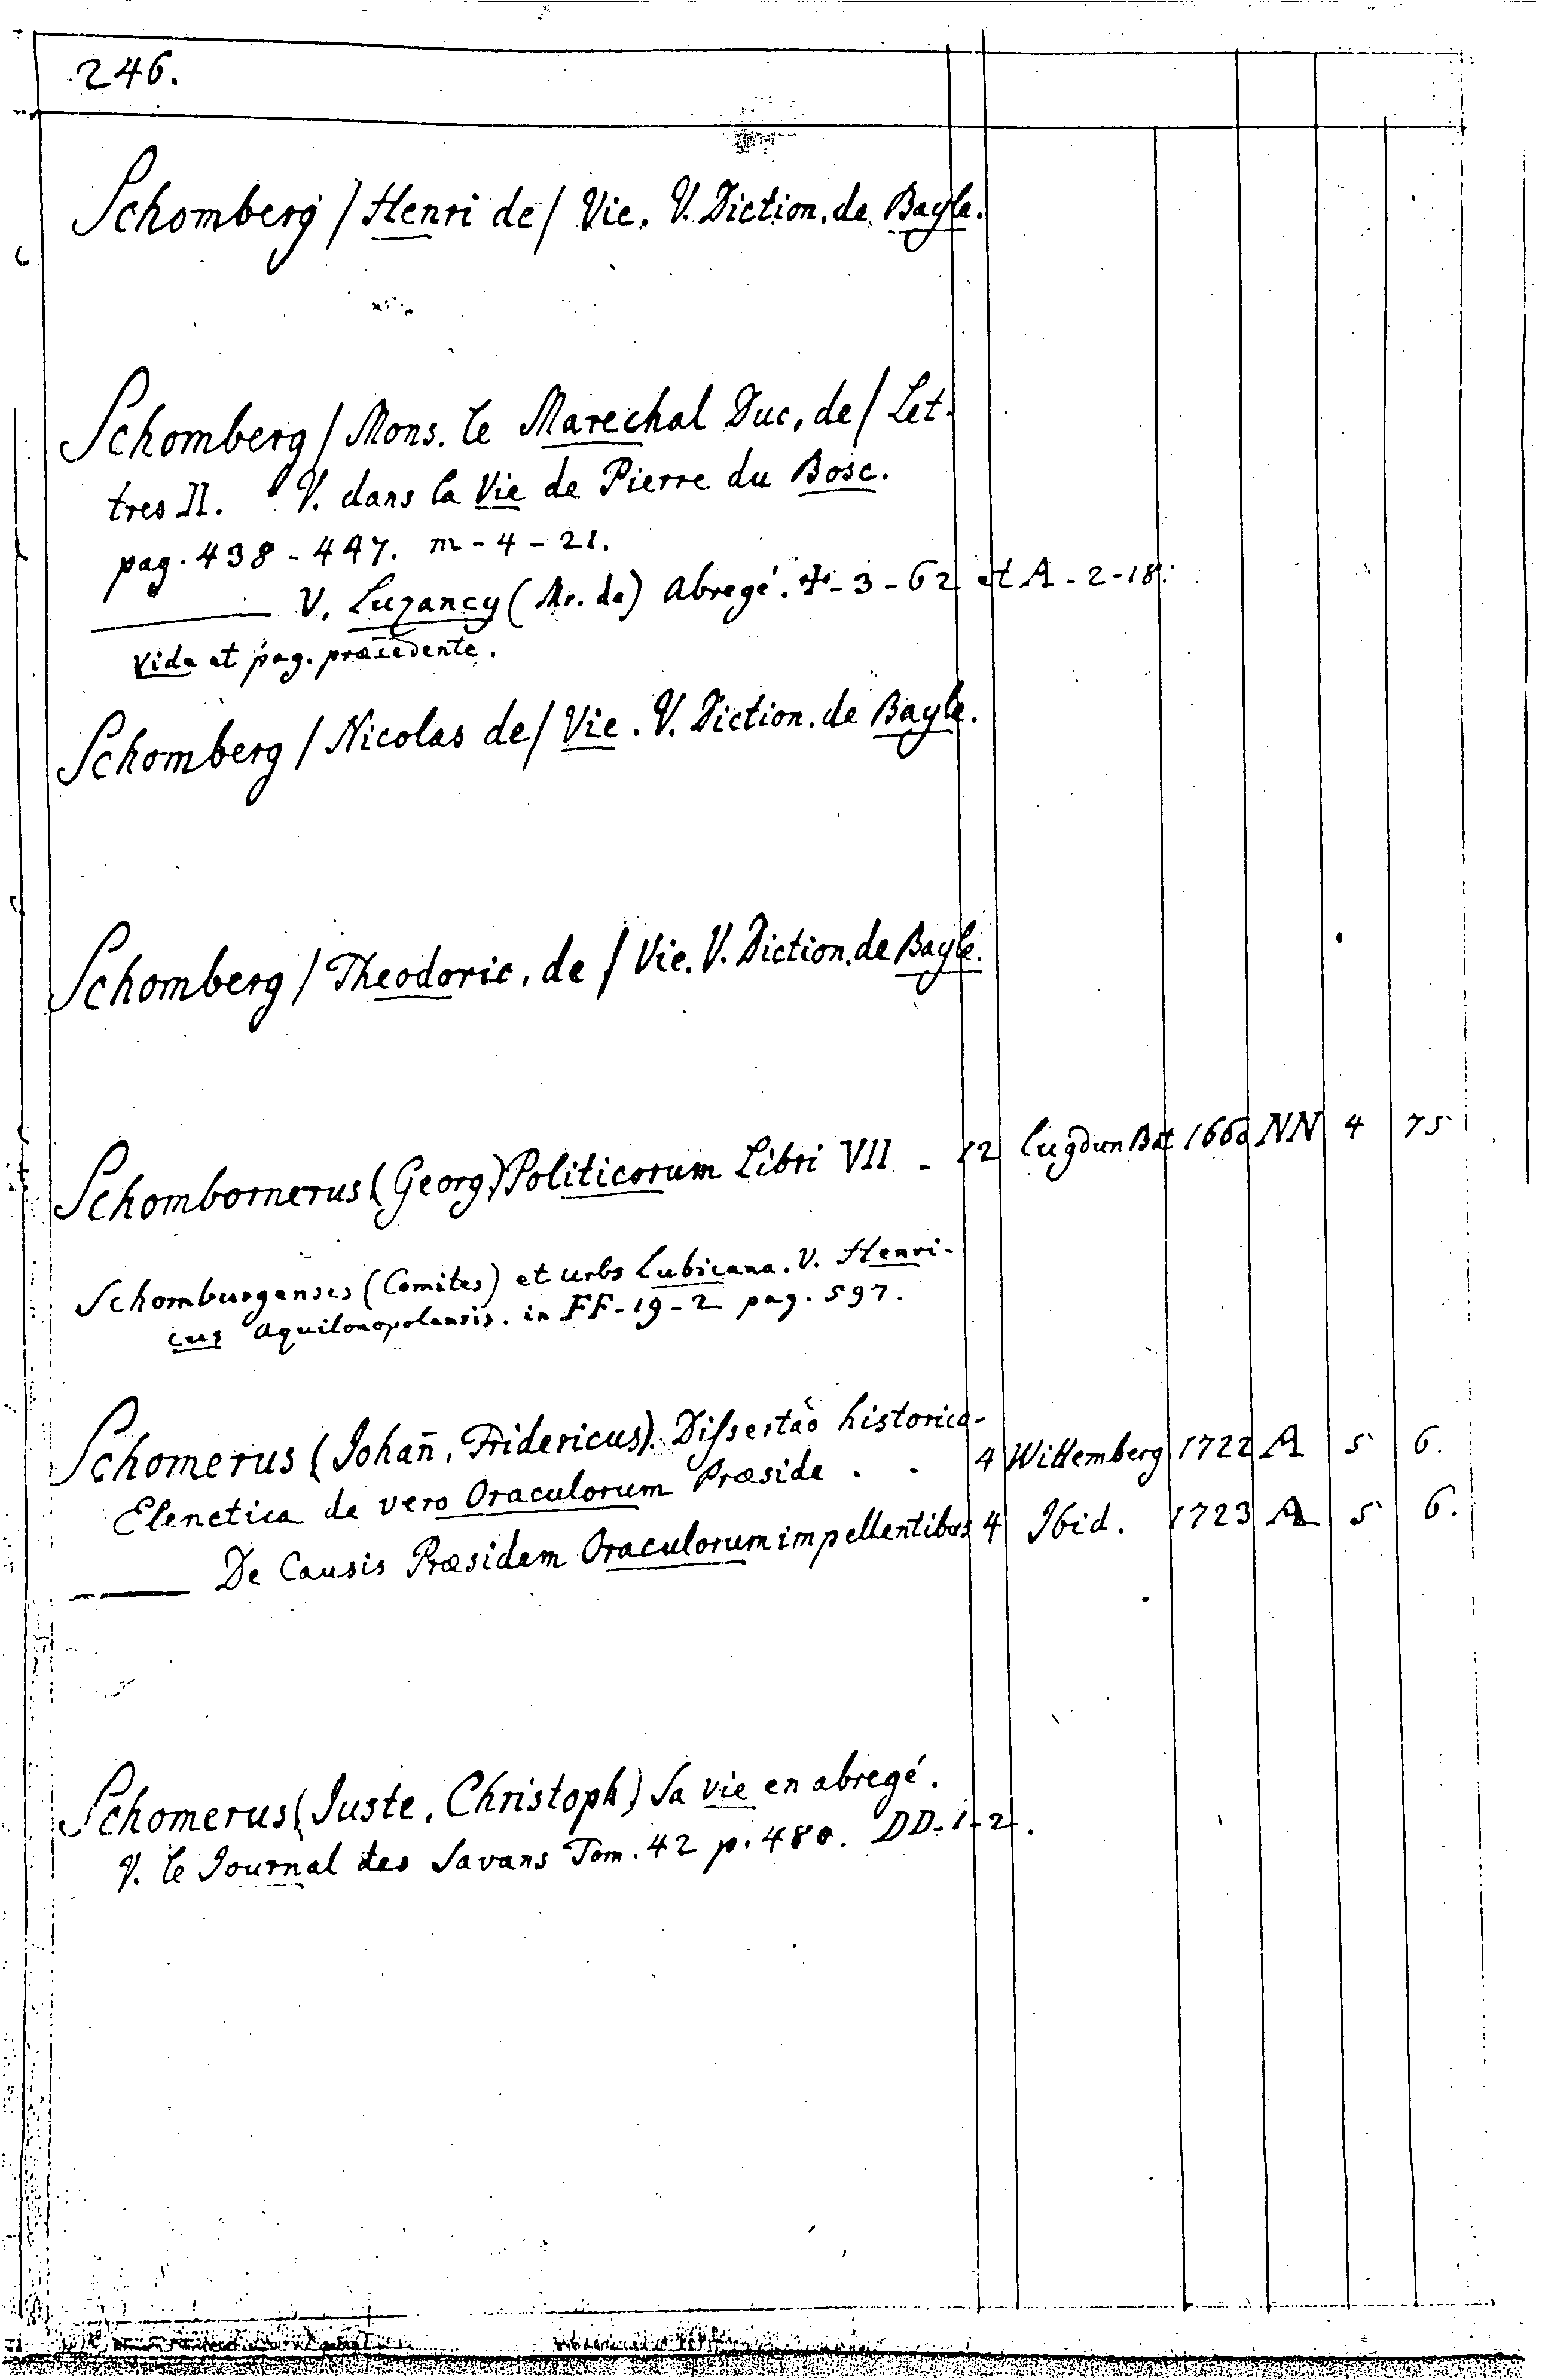 246.
Schomberg / Henri de / Vie. V. Diction. de Bayle.
Schomberg / Mons. le Marechal Duc, de / Let-
tres II. V. dans la Vie de Pierre du Bosc.
pag. 438 - 447. m - 4 - 21.
——— V. Luzancy (Mr. de) Abregé. - 3 - 62 et A - 2 - 18.
Vide et pag. præcedente.
Schomberg / Nicolas de / Vie. V. Diction. de Bayle.
Schomberg / Theodoric, de / Vie. V. Diction. de Bayle.
Schombornerus (Georg) Politicorum Libri VII - 12 Lugdun Bat 1660 NN 4 75
Schomburgenses (Comites) et urbs Lubicana. V. Henri-
cus Aquilonopolensis. in FF - 19 - 2 pag. 597.
Schomerus (Johan̄. Fridericus). Dissertaõ historico-
Elenctica de vero Oraculorum Præside . . 4 Wittemberg 1722 A 5 6.
——— De Causis Præsidem Oraculorum impellentibus 4 Ibid. 1723 A 5 6.
Schomerus (Juste, Christoph) Sa vie en abregé.
V. le Journal des Savans Tom. 42 p. 480. DD - 1 - 2.